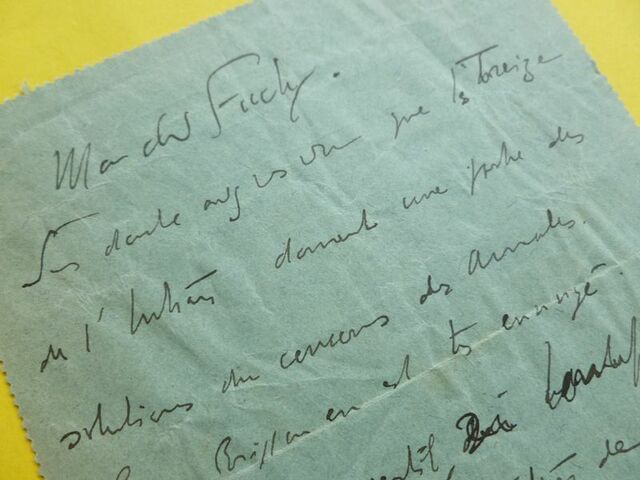 Mon cher Fuchs.
Sans doute avez vs vu que ls Treize
de l'Intran donnent une partie des
solutions du concours des Annales.
Brisson en est très ennuyé.
de